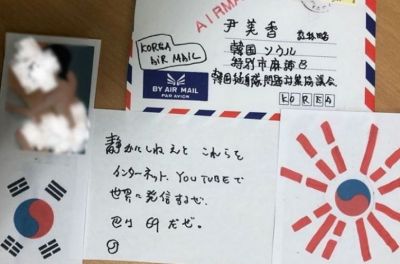 AIRMA
尹美香
KOREA
AIR MAIL
韓国 ソウル
特別市麻浦
BY AIR MAIL
PAR AVION
韓国挺身隊問題対策協議会
KOREA
静かにしねえと これらを
インターネット、YOUTUBEで
世界に発信するぜ.
だぜ。